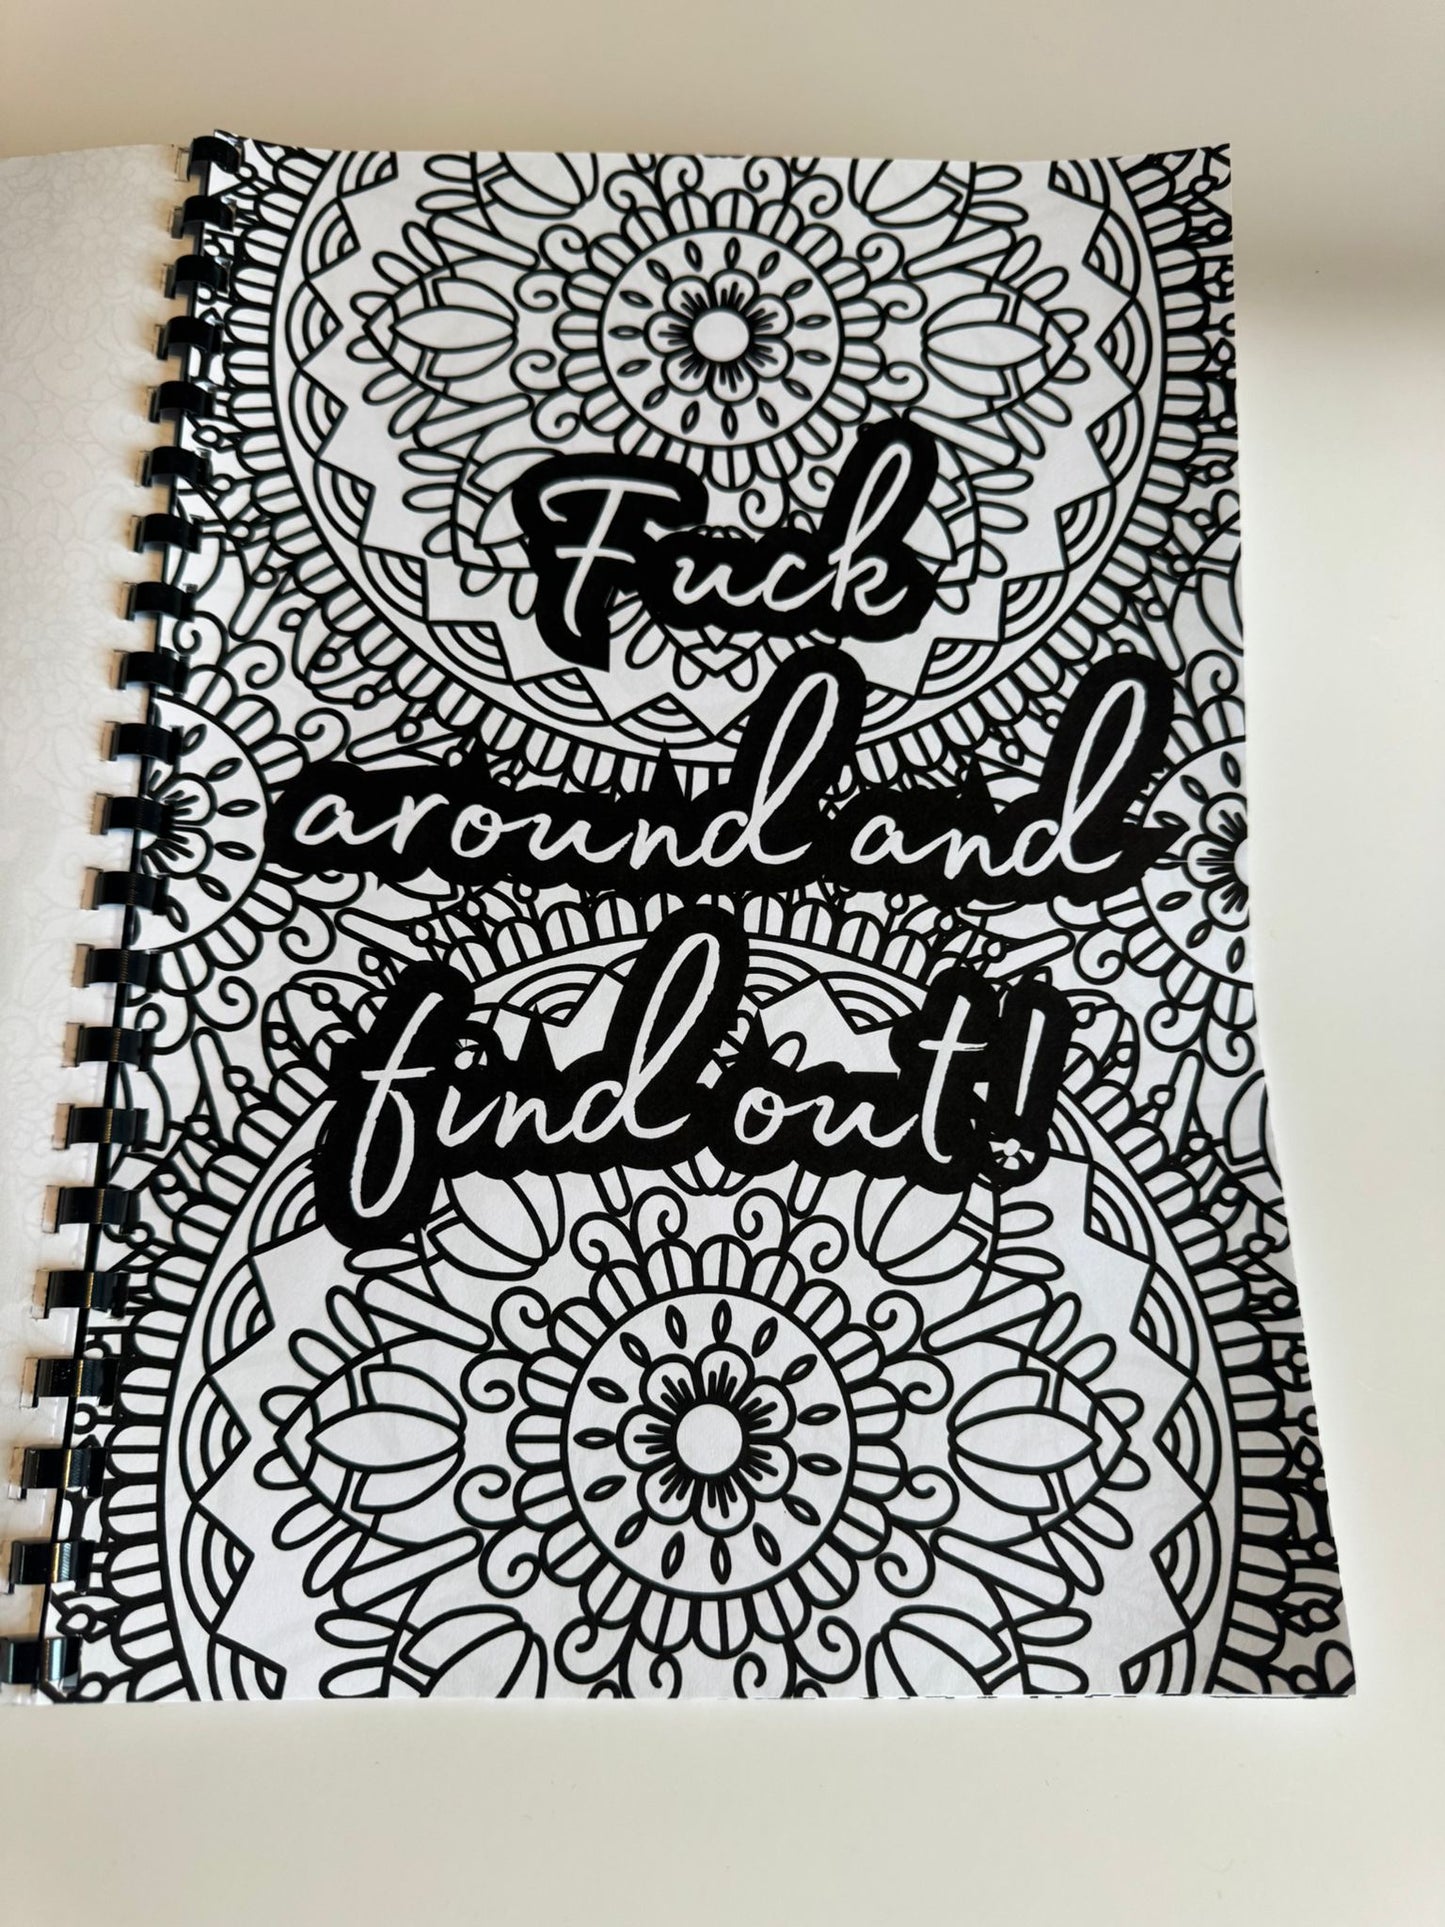 Fuck
around and
find out!